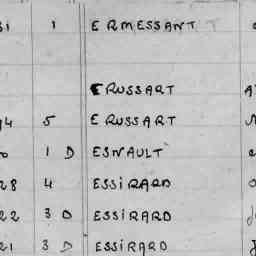 1 ERMESSANT
ERUSSART
5 ERUSSART
1 D ESNAULT
28 4 ESSIRARD
22 3 D ESSIRARD
21 3 D ESSIRARD